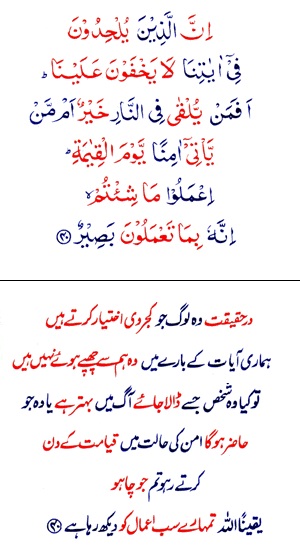 اِنَّ الَّذِیْنَ یُلْحِدُوْنَ
فِیْۤ اٰیٰتِنَا لَا یَخْفَوْنَ عَلَیْنَا ؕ
اَفَمَنْ یُّلْقٰی فِی النَّارِ خَیْرٌ اَمْ مَّنْ
یَّاْتِیْۤ اٰمِنًا یَّوْمَ الْقِیٰمَةِ ؕ
اِعْمَلُوْا مَا شِئْتُمْ ۙ
اِنَّهٗ بِمَا تَعْمَلُوْنَ بَصِیْرٌ ﴿۴۰﴾
درحقیقت وہ لوگ جو کجروی اختیار کرتے ہیں
ہماری آیات کے بارے میں وہ ہم سے چھپے ہوئے نہیں ہیں
تو کیا وہ شخص جسے ڈالا جائے آگ میں بہتر ہے یا وہ جو
حاضر ہوگا امن کی حالت میں قیامت کے دن
کرتے رہو تم جو چاہو
یقیناً اللہ تمہارے سب اعمال کو دیکھ رہا ہے ﴿۴۰﴾